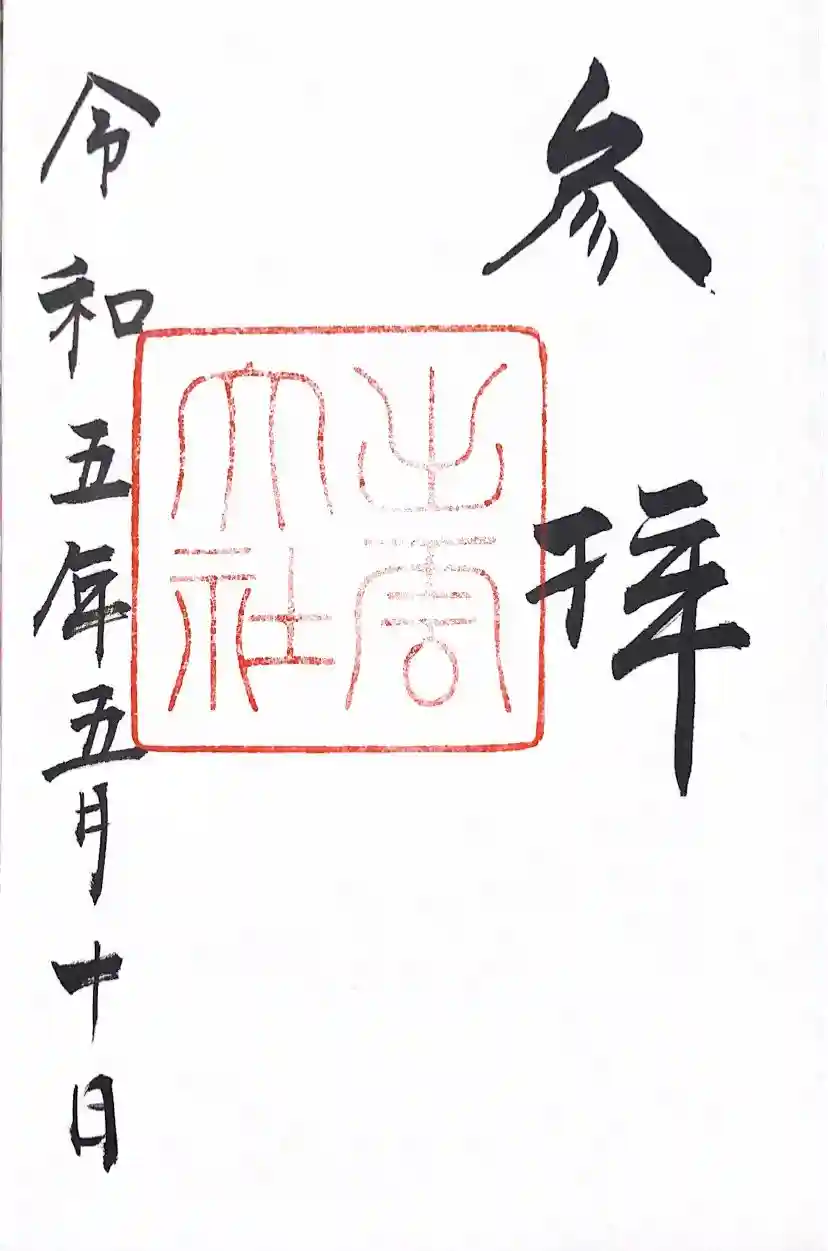 参拝
出雲
大社
令和五年五月十日